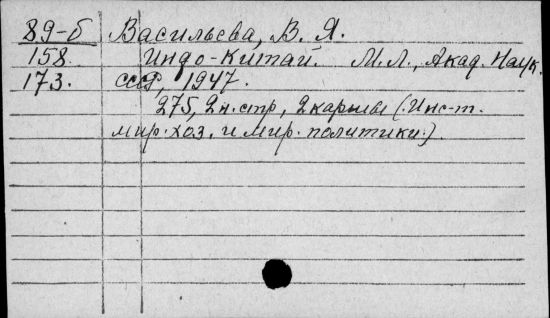 89-б Васильева, В. Я.
158. Индо-Китай. М.Л., Акад. Наук.
173. СССР, 1947.
275, 2н. стр, 2 карты (Инс-т.
мир. хоз. и мир. политики.)